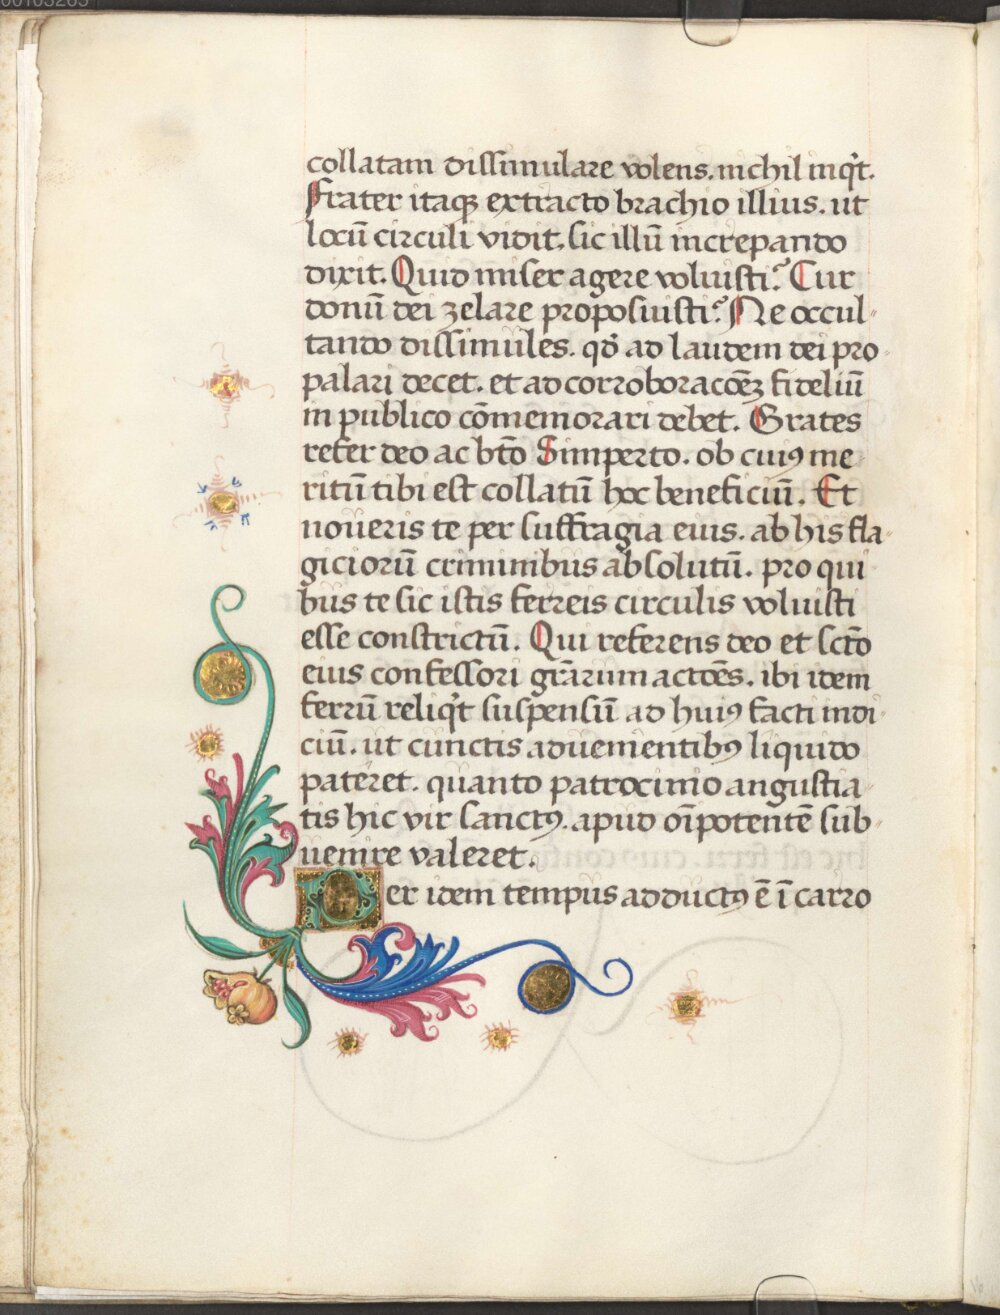 collatam dissimulare volens. nichil inqͥt.
Frater itaqꝫ extracto brachio illius. ut
locū circuli vidit. sic illū increpando
dixit. Quid miser agere voluisti? Cur
donū dei zelare proposuisti? Ne occul⸗
tando dissimules. qd̄ ad laudem dei pro⸗
palari decet. et ad corroboracōꝫ fideliū
in publico cōmemorari debet. Grates
refer deo ac bt̄o Simperto. ob cuiꝰ me⸗
ritū tibi est collatū hoc beneficiū. Et
noveris te per suffragia eius. ab his fla⸗
giciorū criminibus absolutū. pro qui⸗
bus te sic istis ferreis circulis voluisti
esse constrictū. Qui referens deo et sct̄o
eius confessori grārum actōes. ibi idem
ferrū reliqͥt suspensū ad huiꝰ facti indi⸗
ciū. ut cunctis advenientibꝰ liquido
pateret. quanto patrocinio angustia⸗
tis hic vir sanctꝰ. apud oīpotentē sub⸗
venire valeret.
Per idem tempus adductꝰ ē ī carro